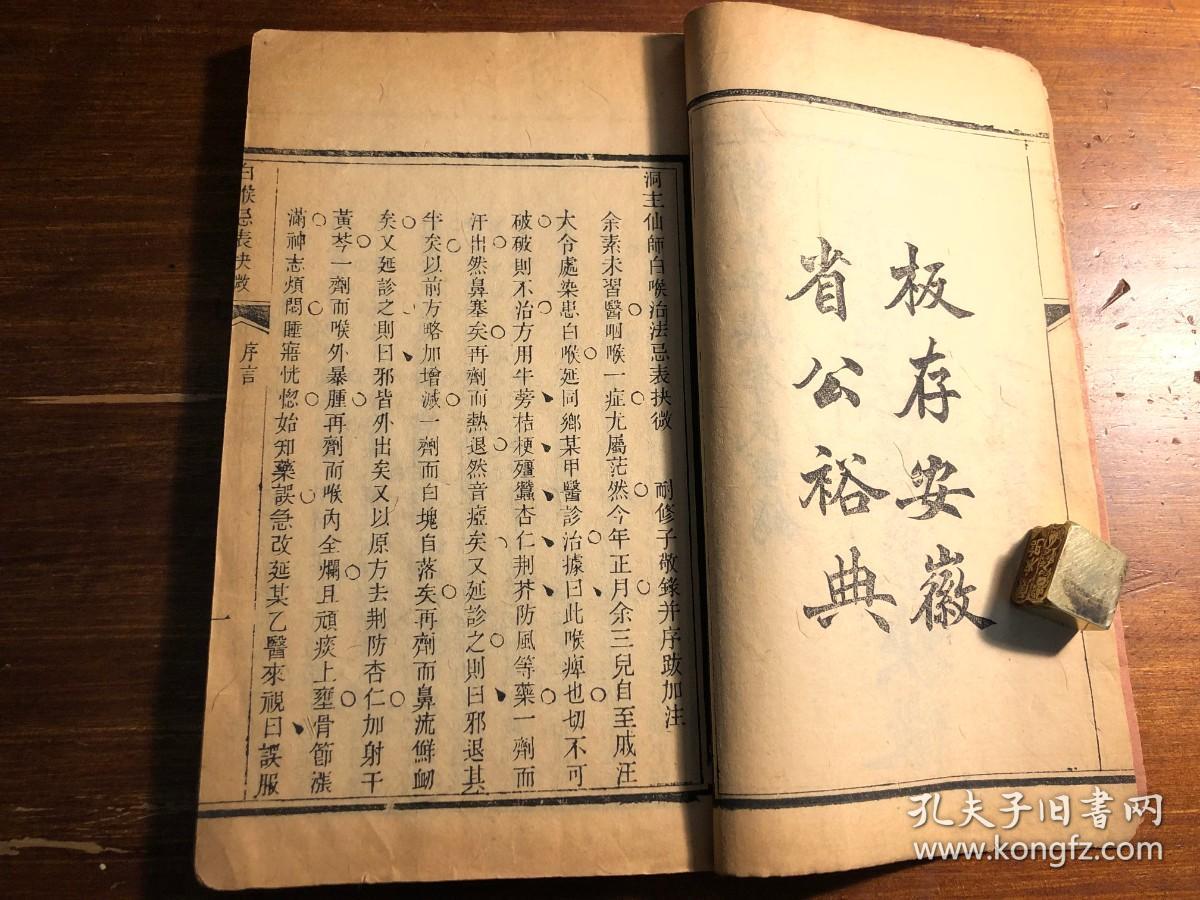 板存安徽
省公裕典
洞主仙師白喉治法忌表抉微　耐修子敬錄并序跋加注
余素未習醫咽喉一症尤屬茫然今年正月余三兒自至戚汪
大令處染患白喉延同鄉某甲醫診治據曰此喉痺也切不可
破破則不治方用牛蒡桔梗殭蠶杏仁荆芥防風等藥一劑而
汗出然鼻塞矣再劑而熱退然音瘂矣又延診之則曰邪退其
半矣以前方略加增減一劑而白塊自落矣再劑而鼻流鮮衂
矣又延診之則曰邪皆外出矣又以原方去荆防杏仁加射干
黃芩一劑而喉外暴腫再劑而喉內全爛且頑痰上壅骨節漲
滿神志煩悶睡寤恍惚始知藥誤急改延某乙醫來視曰誤服
白喉忌表抉微
序言
孔夫子旧书网
www.kongfz.com